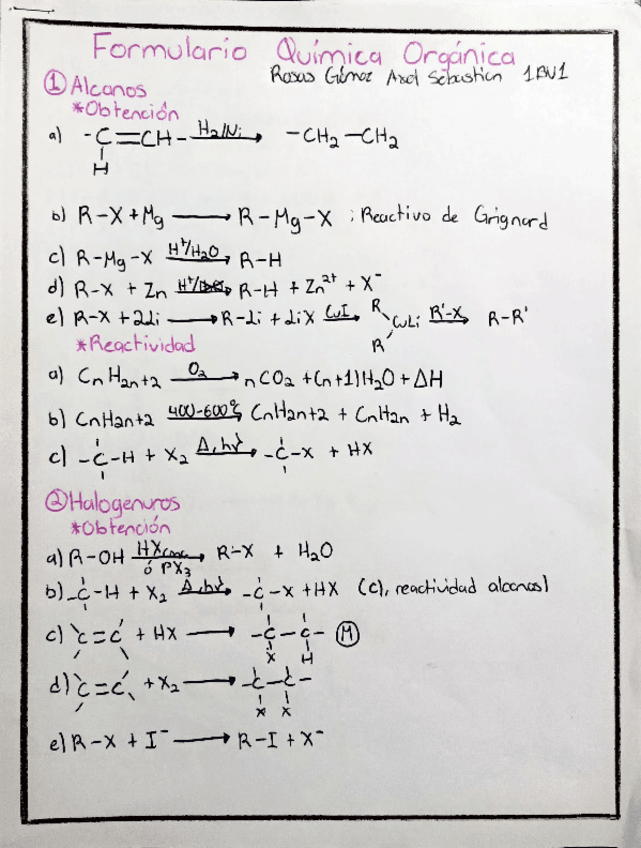 Formulario Química Orgánica
Rosas Gómez Axel Sebastian 1RV1
① Alcanos
*Obtención
a) -C=CH- H2/Ni → -CH2-CH2
H
b) R-X + Mg → R-Mg-X ; Reactivo de Grignard
c) R-Mg-X H+/H2O → R-H
d) R-X + Zn H+/ → R-H + Zn2+ + X-
e) R-X + 2Li → R-Li + LiX CuI → R R CuLi R'-X → R-R'
*Reactividad
a) CnH2n+2 O2 → nCO2 + (n+1)H2O + ΔH
b) CnH2n+2 400-600°C → CnH2n+2 + CnH2n + H2
c) -C-H + X2 Δ, hν → -C-X + HX
② Halogenuros
*Obtención
a) R-OH HXconc ó PX3 → R-X + H2O
b) -C-H + X2 Δ, hν → -C-X + HX (c), reactividad alcanos)
c) C=C + HX → -C-C- Ⓜ
X H
d) C=C + X2 → -C-C-
X X
e) R-X + I- → R-I + X-